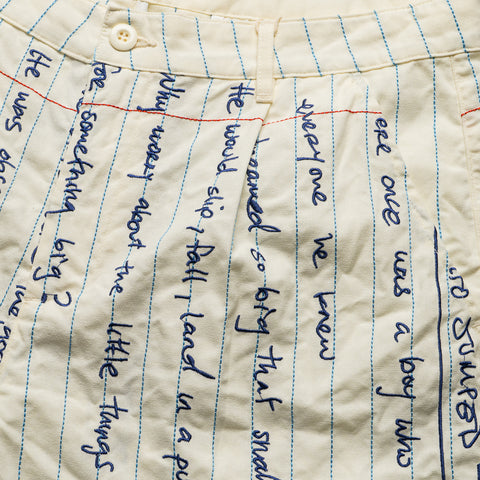 JUMPED
ere one was a boy who
everyone he knew
dreamed so big that smal
He would slip, fall, land in a pu
Why worry about the little things
something big?
He was